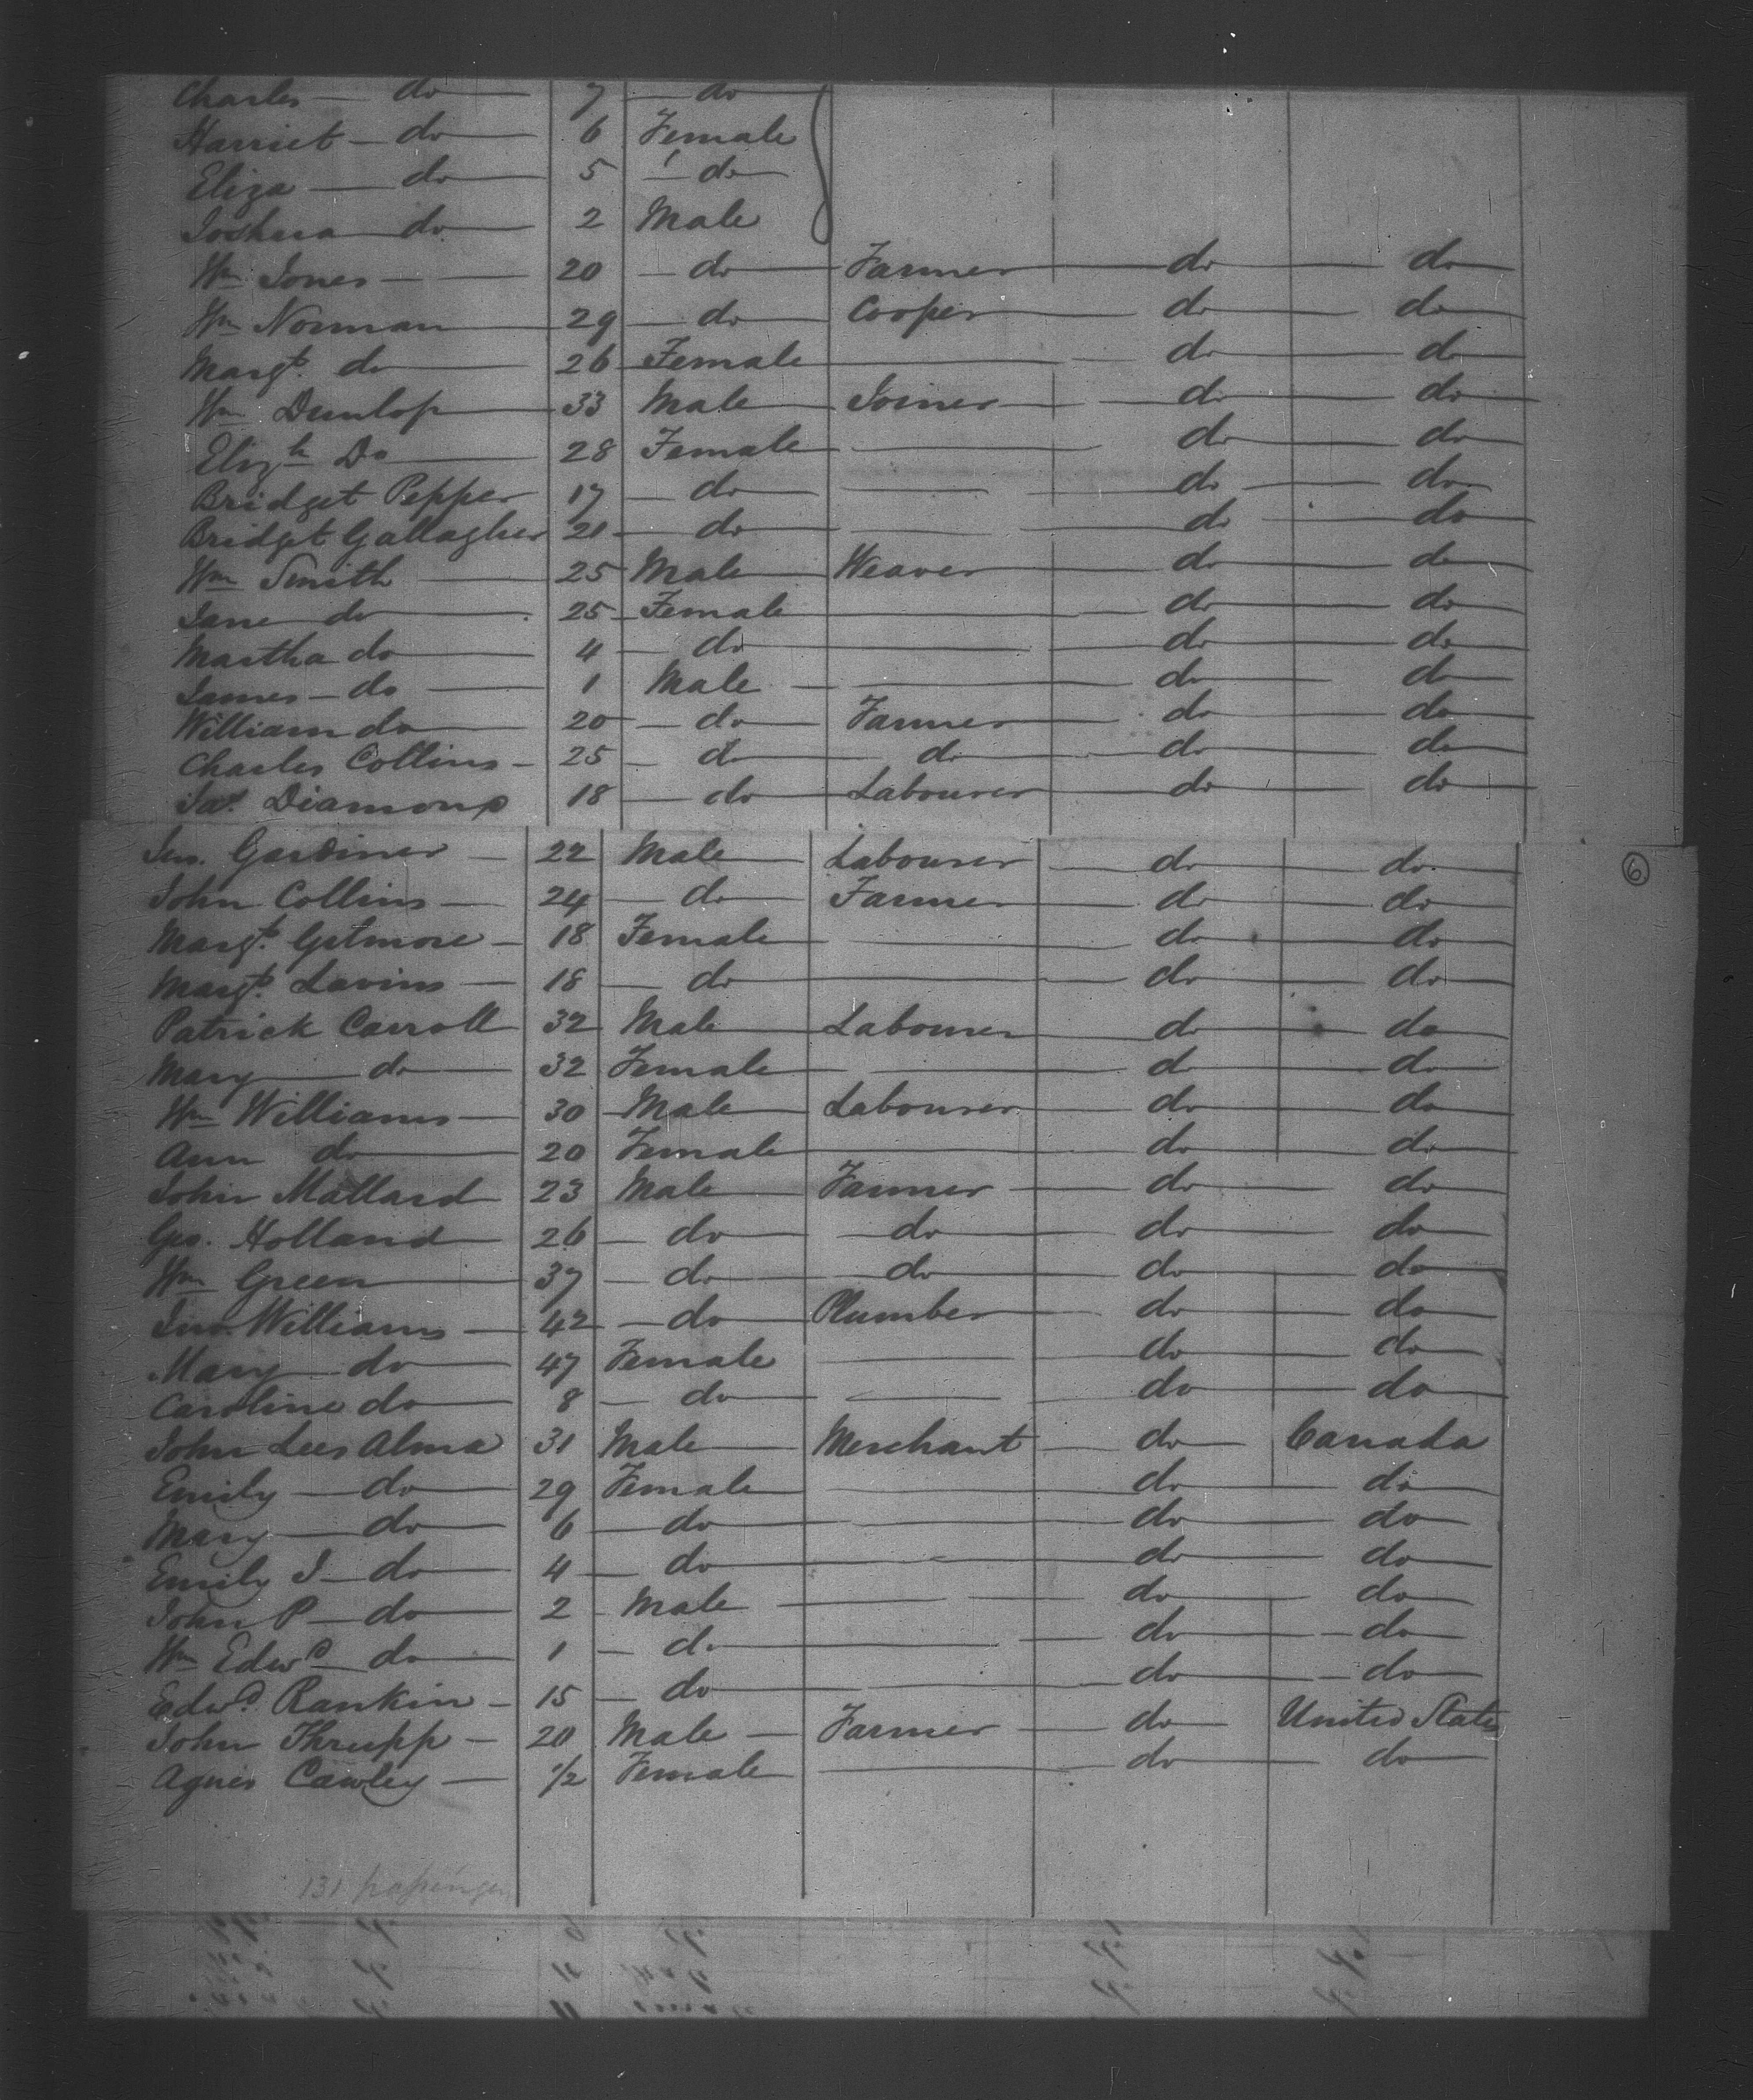 Charles do 7 do
Harriet do 6 Female
Eliza do 5 do
Joshua do 2 Male
Wm Jones 20 do Farmer do do
Wm Norman 29 do Cooper do do
Margt. do 26 Female do do
Wm Dunlop 33 Male Joiner do do
Elizth Do 28 Female do do
Bridget Pepper 17 do do do
Bridget Gallagher 21 do do do
Wm Smith 25 Male Weaver do do
Jane do 25 Female do do
Martha do 4 do do do
James do 1 Male do do
William do 20 do Farmer do do
Charles Collins 25 do do do do
Jas. Diamond 18 do Labourer do do
Jno. Gardiner 22 Male Labourer do do
6
John Collins 24 do Farmer do do
Margt. Gilmore 18 Female do do
Margt. Lavins 18 do do do
Patrick Carroll 32 Male Labourer do do
Mary do 32 Female do do
Wm Williams 30 Male Labourer do do
Ann do 20 Female do do
John Mallard 23 Male Farmer do do
Geo. Holland 26 do do do do
Wm Green 37 do do do do
Jno. Williams 42 do Plumber do do
Mary do 47 Female do do
Caroline do 8 do do do
John Lees Alma 31 Male Merchant do Canada
Emily do 29 Female do do
Mary do 6 do do do
Emily J do 4 do do do
John P do 2 Male do do
Wm Edwd do 1 do do do
Edwd. Rankin 15 do do do
John Thrupp 20 Male Farmer do United States
Agnes Cawley 1/2 Female do do
131 passengers